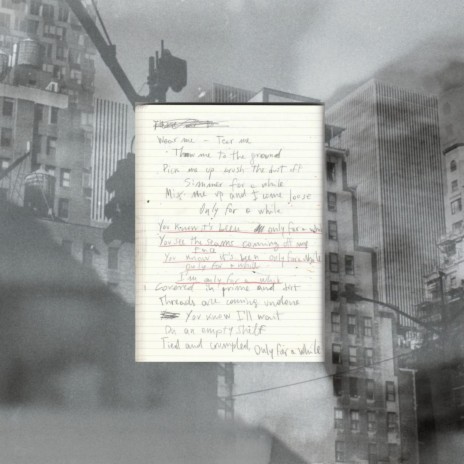 Wear me - Tear me
Throw me to the ground
Pick me up brush the dirt off
Simmer for a while
Mix me up and I come loose
Only for a while
You know it's been only for a while
You see the seams coming off my
Face
You know it's been only for a while
only for a while
I'm only for a while
Covered in grime and dirt
Threads are coming undone
You know I'll wait
On an empty shelf
Tied and crumpled Only for a while